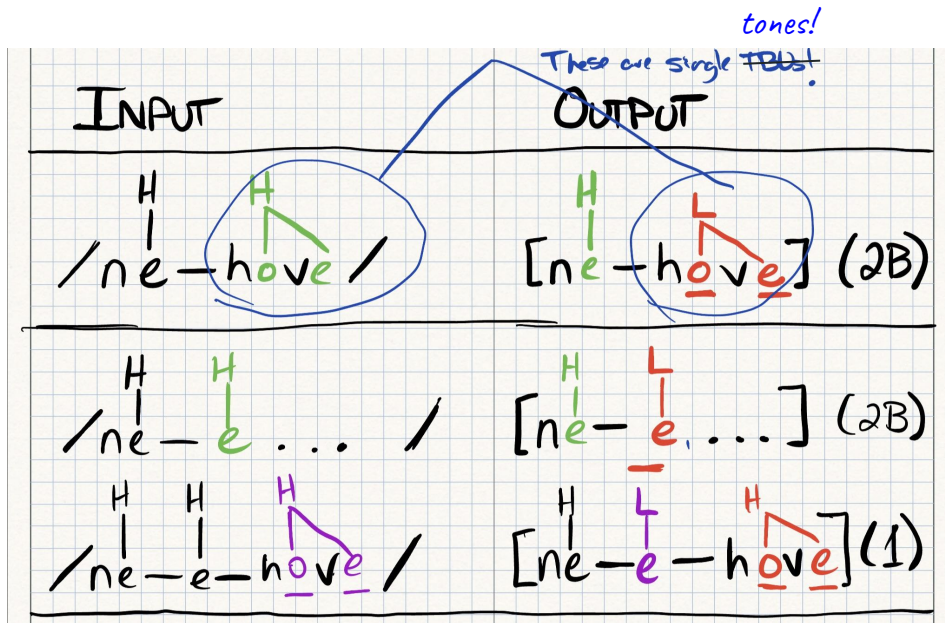 tones!
These are single TBUs!
INPUT OUTPUT
H H H L
/ne-hove/ [ne-hove] (2B)
H H H L
/ne-e.... / [ne-e.....] (2B)
H H H H L H
/ne-e-hove/ [ne-e-hove] (1)